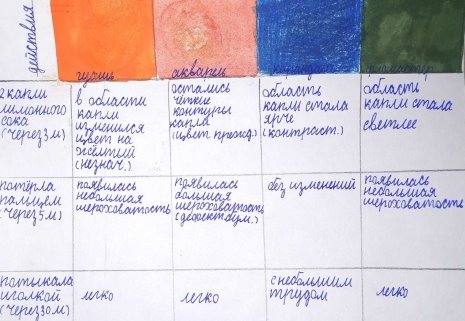 действия
гуашь
акварель
карандаш
фломастер
2 капли
лимонного
сока
(через 3м)
в области
капли
изменился
цвет на
жёлтый
(незнач.)
остались
чёткие
контуры
капла
(цвет преонд.)
область
капли стала
ярче
(контраст.)
область
капли стала
светлее
потёрла
пальцем
(через 5м)
появилась
небольшая
шероховатость
появилась
большая
шероховатость
(дефект бум.)
без изменений
появилась
небольшая
шероховатость
потыкала
иголкой
(через 30м)
легко
легко
с небольшим
трудом
легко